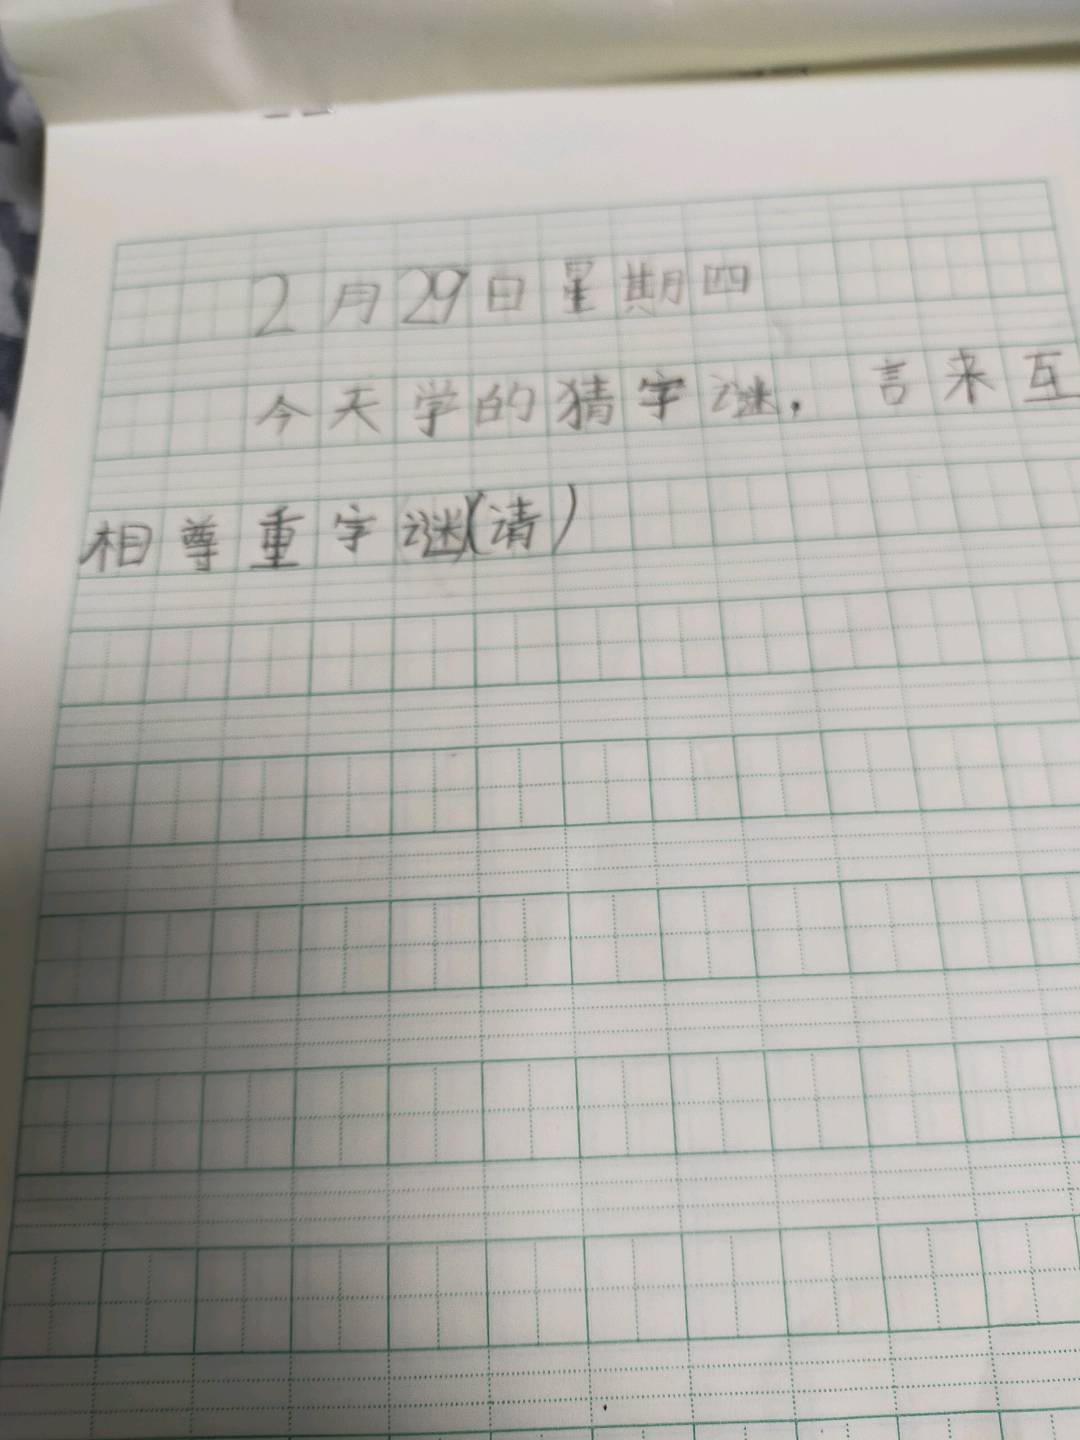 2月29日星期四
今天学的猜字谜，言来互
相尊重字谜(请)